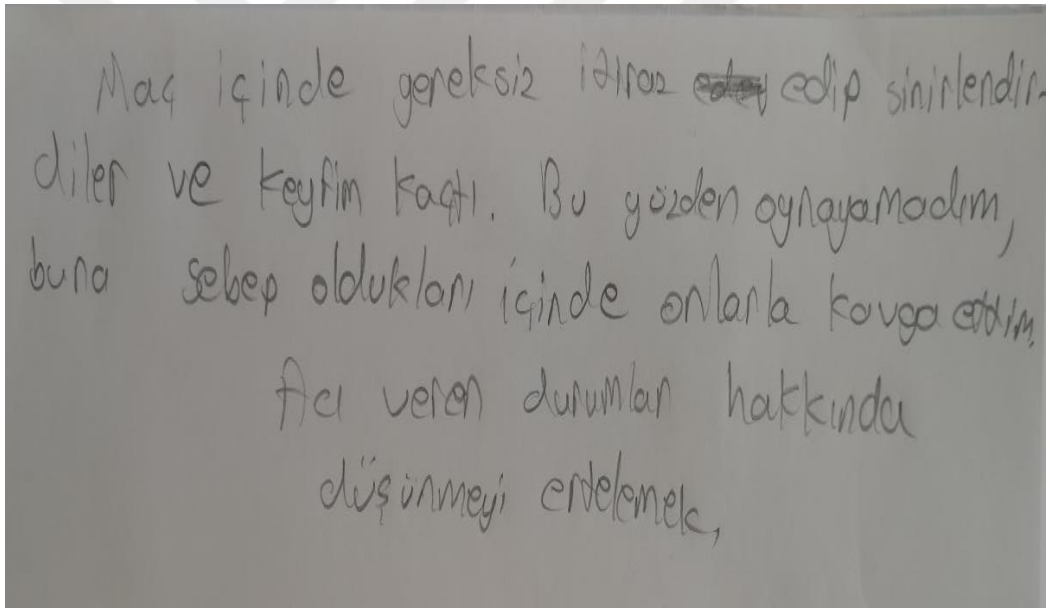 Maç içinde gereksiz itiraz edip sinirlendir-
diler ve keyfim kaçtı. Bu yüzden oynayamadım,
buna sebep oldukları içinde onlarla kavga ettim.
Acı veren durumlar hakkında
düşünmeyi ertelemek,